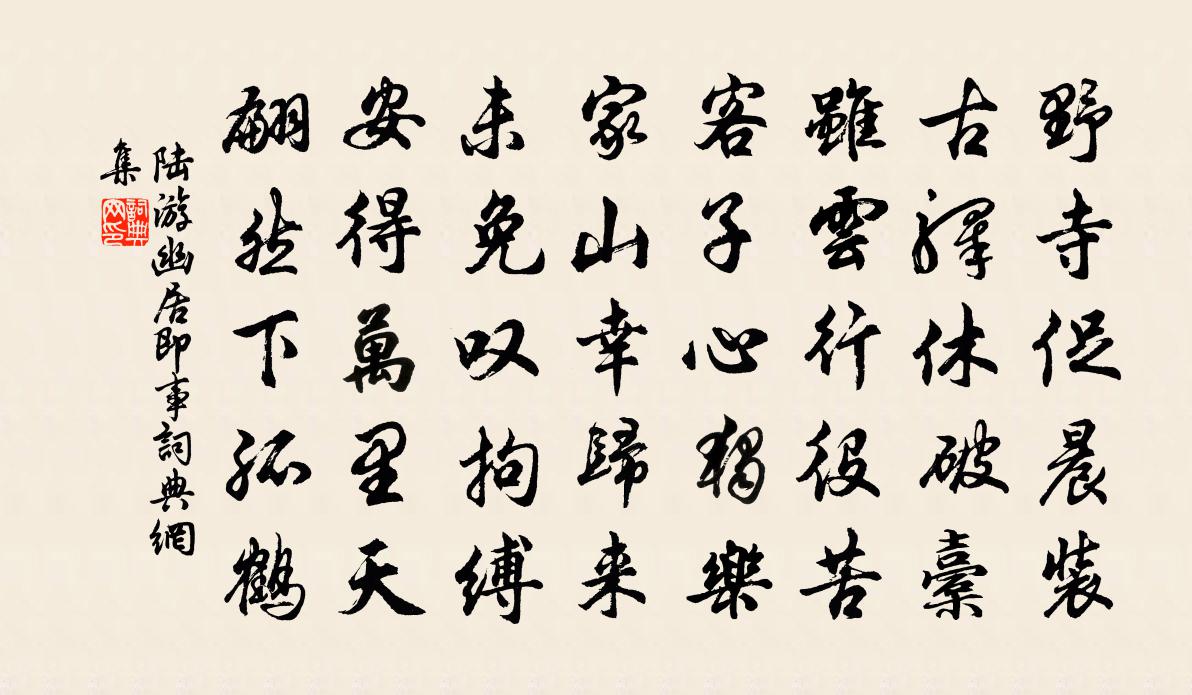 野寺促晨裝
古驛休破橐
雖雲行役苦
客子心獨樂
家山幸歸来
未免叹拘縛
安得萬里天
翩然下孤鶴
陆游幽居即事詞典網
集
詞典
网印